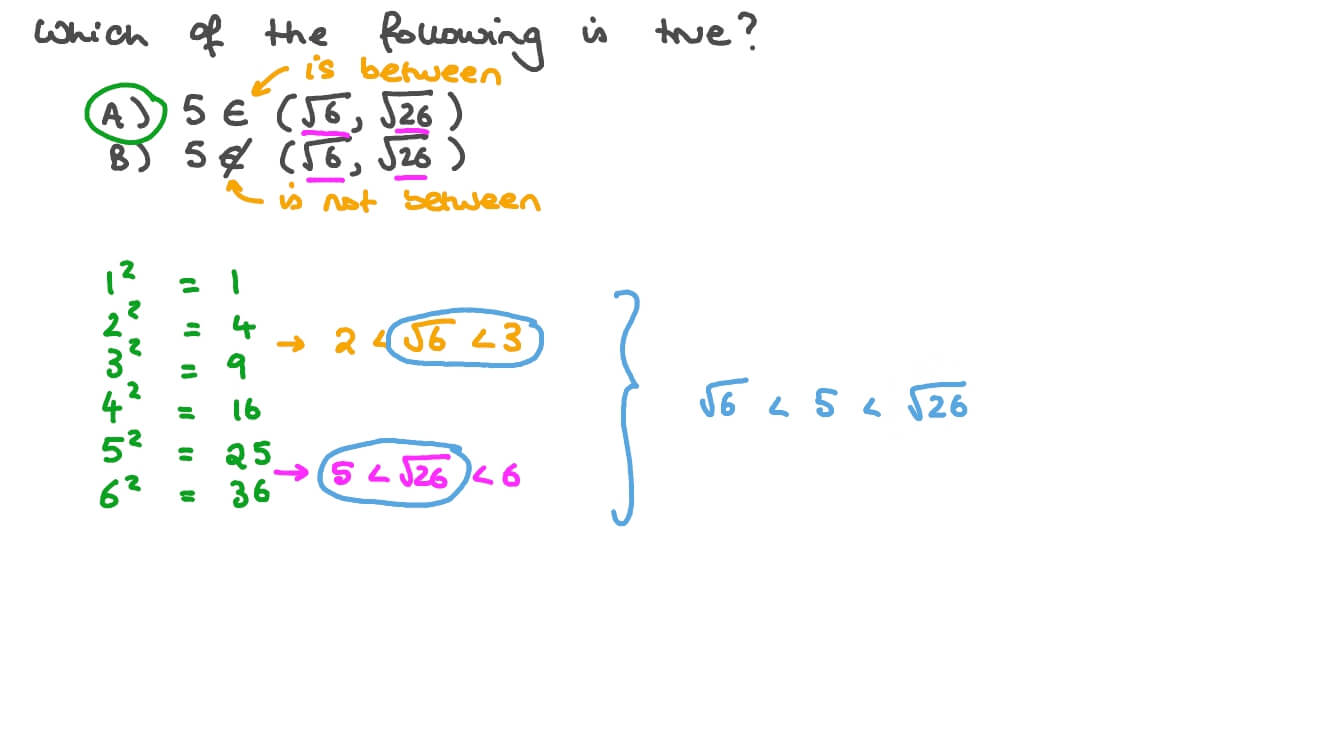 Which of the following is true?
is between
A) 5 ∈ (√6, √26)
B) 5 ∉ (√6, √26)
is not between
1² = 1
2² = 4
→ 2 < √6 < 3
3² = 9
4² = 16
√6 < 5 < √26
5² = 25
→ 5 < √26 < 6
6² = 36